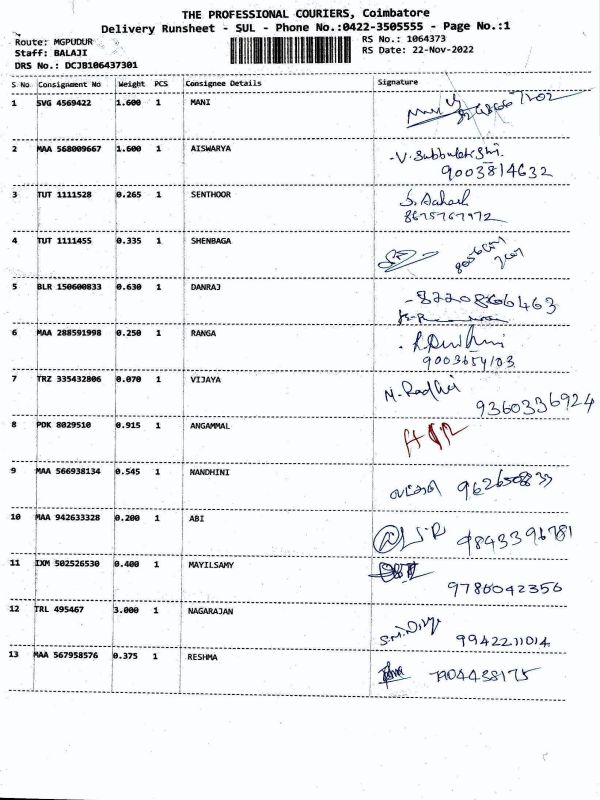 THE PROFESSIONAL COURIERS, Coimbatore
Delivery Runsheet - SUL - Phone No.:0422-3505555 - Page No.:1
Route: MGPUDUR
RS No.: 1064373
Staff: BALAJI
RS Date: 22-Nov-2022
DRS No.: DCJB106437301
S No Consignment No Weight PCS Consignee Details Signature
1 SVG 4569422 1.600 1 MANI
2 MAA 568009667 1.600 1 AISWARYA V. Subbulakshmi
9003814632
3 TUT 1111528 0.265 1 SENTHOOR S. Aakash
8675767972
4 TUT 1111455 0.335 1 SHENBAGA
5 BLR 150600833 0.630 1 DANRAJ
6 MAA 288591998 0.250 1 RANGA
9003654103
7 TRZ 335432806 0.070 1 VIJAYA M. Radhi
9360336924
8 PDK 8029510 0.915 1 ANGAMMAL
9 MAA 566938134 0.545 1 NANDHINI
10 MAA 942633328 0.200 1 ABI 9843396781
11 IXM 502526530 0.400 1 MAYILSAMY
9786042356
12 TRL 495467 3.000 1 NAGARAJAN S.M. Divya
9942211014
13 MAA 567958576 0.375 1 RESHMA 7904438175